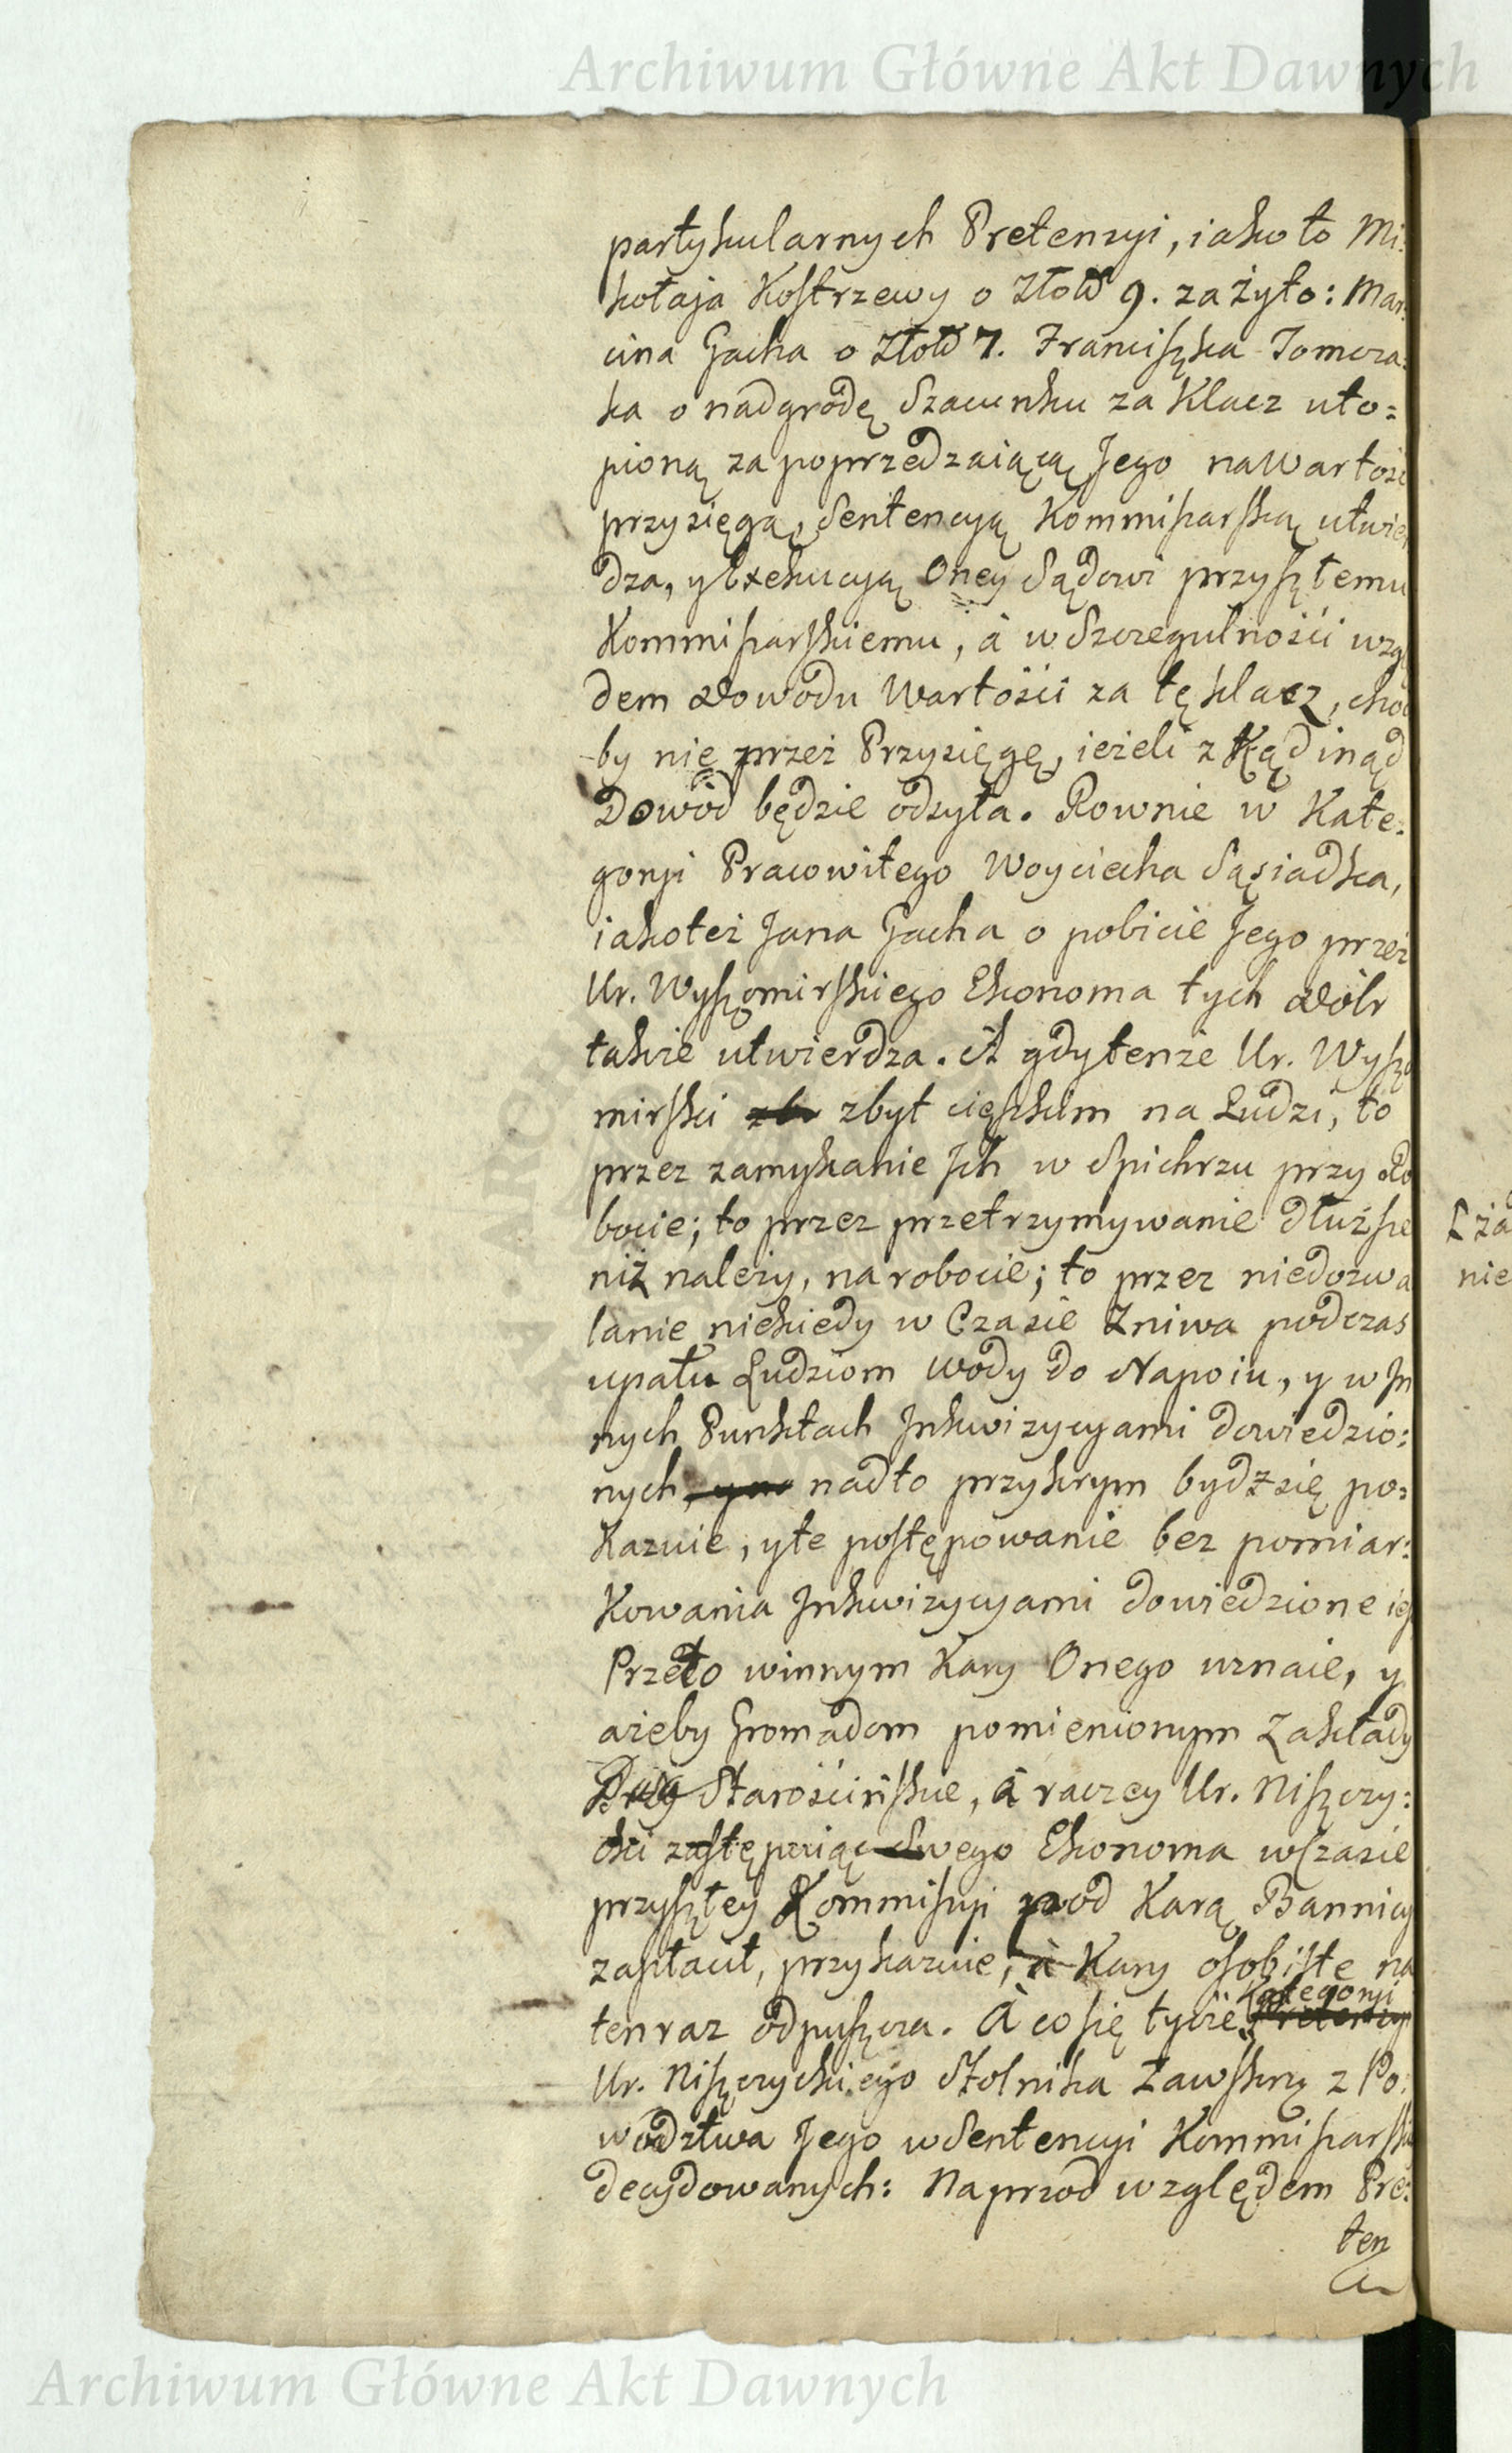 Archiwum Główne Akt Dawnych
partykularnych Pretensyi, iako to Mi:
kołaja Kostrzewy o Złotť 9. za żyto: Mar:
cina Gacha o Złotť 7. Franciszka Tomcza:
ka o nadgrodę Szacunku za Klacz uto=
pioną za poprzedzaiącą Jego na wartość
przysięgą, Sentencyą Kommissarską utwier
dza, y Exekucyą Oney Sądowi przyszłemu
Kommissarskiemu, à w Szczegulności wzglę
dem Dowodu Wartości za tę klacz, choć
by nie przez Przysięgę, ieżeli z Kąd inąd
Dowód będzie odsyła. Rownie w Kate=
goryi Pracowitego Woyciecha Sąsiadka,
iakoteż Jana Gacha o pobicie Jego przez
Ur. Wyszomirskiego Ekonoma tych Dóbr
także utwierdza. A gdy tenże Ur. Wyszo
mirski zbyt cięszkim na Ludzi, to
przez zamykanie Jch w Spichrzu przy Ro
bocie; to przez przetrzymywanie dłuższe
niż należy, na robocie; to przez niedozwa
lanie niekiedy w Czasie Żniwa podczas
upału Ludziom wody do Napoiu, y w Jn
nych Punktach Jnkwizycyami dowiedzio:
nych nadto przykrym bydź się po=
kazuie, y te postępowanie bez pomiar:
kowania Jnkwizycyami dowiedzione iest
Przeto winnym Kary Onego uznaie, y
ażeby Gromadom pomienionym Zakłady
Starościńskie, à raczey Ur. Niszczy:
cki zastępuiąc Swego Ekonoma w Czasie
przyszłey Kommissyi pod Karą Bannicyi
zapłacił, przykazuie, à Kary osobiste na
ten raz odpuszcza. À co się tycze Kategoryi Pretensyi
Ur. Niszczyckiego Stolnika Zawskrz z Po:
wództwa Jego w Sentencyi Kommissarski
decydowanych: Naprzod względem Pre:
ten
Lża
nie
Archiwum Główne Akt Dawnych